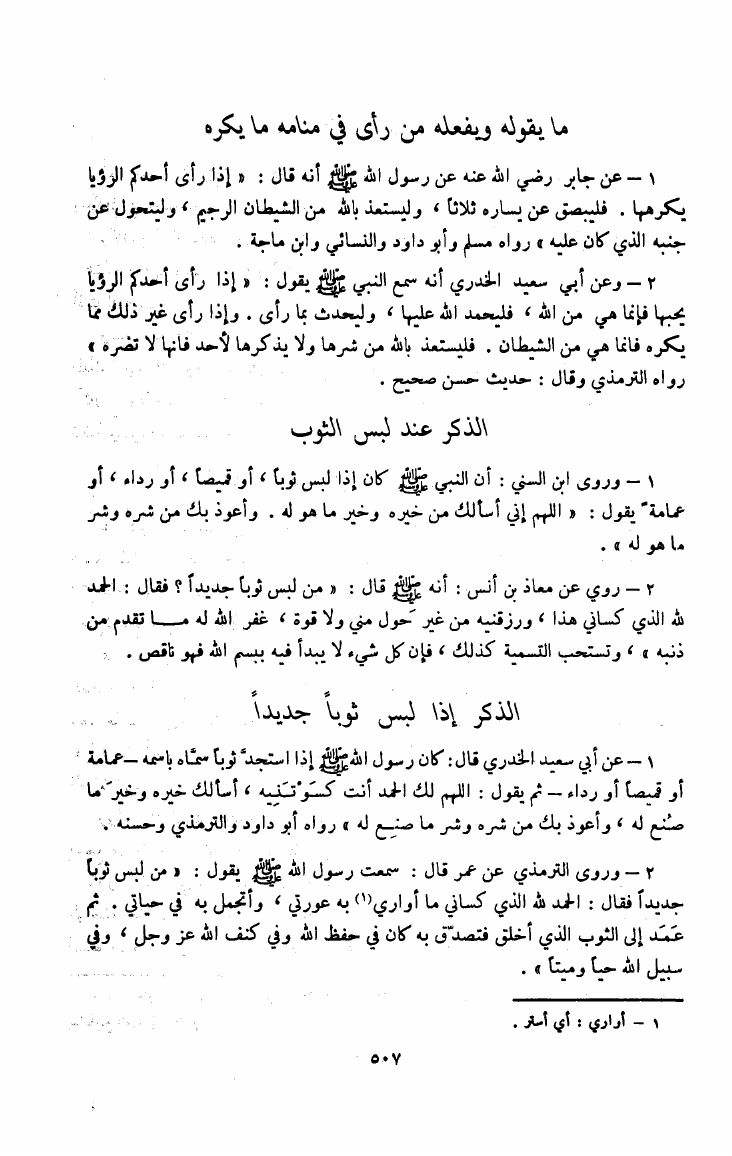 ما يقوله ويفعله من رأى في منامه ما يكره
١ – عن جابر رضي الله عنه عن رسول الله ﷺ أنه قال : « إذا رأى أحدكم الرؤيا
يكرهها . فليبصق عن يساره ثلاثاً ، وليستعذ بالله من الشيطان الرجيم ، وليتحول عن
جنبه الذي كان عليه » رواه مسلم وأبو داود والنسائي وابن ماجة .
٢ – وعن أبي سعيد الخدري أنه سمع النبي ﷺ يقول : « إذا رأى أحدكم الرؤيا
يحبها فإنما هي من الله ، فليحمد الله عليها ، وليحدث بما رأى . وإذا رأى غير ذلك مما
يكره فانما هي من الشيطان . فليستعذ بالله من شرها ولا يذكرها لأحد فانها لا تضره »
رواه الترمذي وقال : حديث حسن صحيح .
الذكر عند لبس الثوب
١ – وروى ابن السني : أن النبي ﷺ كان إذا لبس ثوباً ، أو قميصاً ، أو رداء ، أو
عمامة ً يقول : « اللهم إني أسألك من خيره وخير ما هو له . وأعوذ بك من شره وشر
ما هو له » .
٢ – روي عن معاذ بن أنس : أنه ﷺ قال : « من لبس ثوباً جديداً ؟ فقال : الحمد
لله الذي كساني هذا ، ورزقنيه من غير حَول مني ولا قوة ، غفر الله له مـــا تقدم من
ذنبه » ، وتستحب التسمية كذلك ، فإن كل شيء لا يبدأ فيه ببسم الله فهو ناقص .
الذكر إذا لبس ثوباً جديداً
١ – عن أبي سعيد الخدري قال : كان رسول الله ﷺ إذا استجدَّ ثوباً سمَّاه باسمه – عمامة
أو قميصاً أو رداء – ثم يقول : اللهم لك الحمد أنت كسَوْتَنِيه ، أسألك خيره وخيرَ ما
صُنع له ، وأعوذ بك من شره وشر ما صنِع له » رواه أبو داود والترمذي وحسنه .
٢ – وروى الترمذي عن عمر قال : سمعت رسول الله ﷺ يقول : « من لبس ثوباً
جديداً فقال : الحمد لله الذي كساني ما أواري(١) به عورتي ، وأتجمل به في حياتي . ثم
عَمَد إلى الثوب الذي أخلق فتصدّق به كان في حفظ الله وفي كنف الله عز وجل ، وفي
سبيل الله حياً وميتاً » .
١ – أواري : أي أستر .
٥٠٧